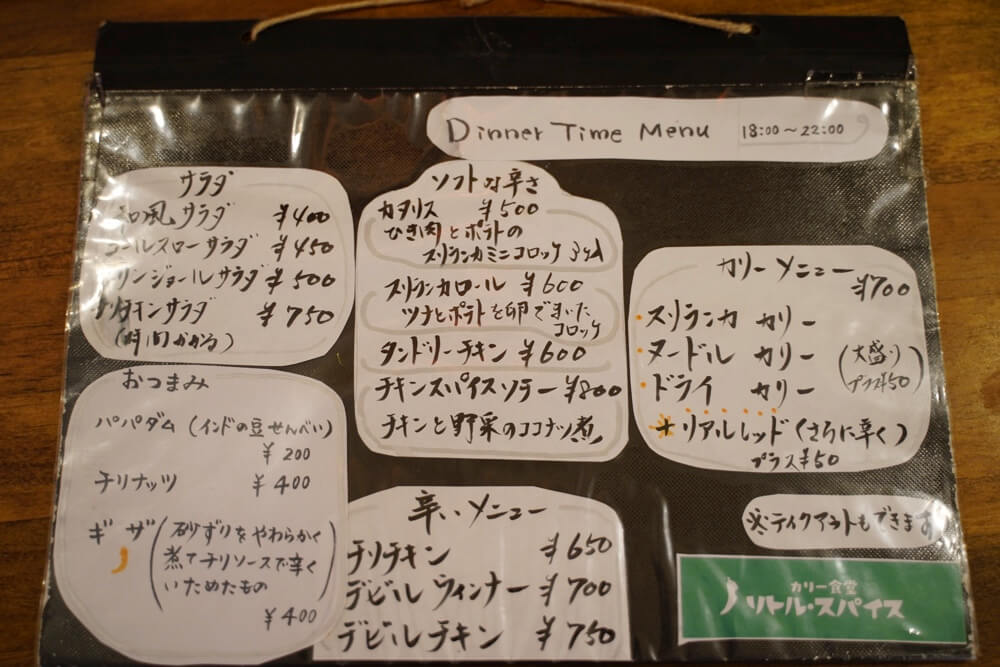 Dinner Time Menu 18:00～22:00
サラダ
和風サラダ ¥400
コールスローサラダ ¥450
リンジョールサラダ ¥500
チキンサラダ ¥750
(時間かかる)
おつまみ
パパダム (インドの豆せんべい)
¥200
チリナッツ ¥400
ギザ (砂ずりをやわらかく
煮てチリソースで辛く
いためたもの)
¥400
ソフトな辛さ
カタリス ¥500
ひき肉とポテトの
スリランカミニコロッケ
スリランカロール ¥600
ツナとポテトを卵でまいた
コロッケ
タンドリーチキン ¥600
チキンスパイスソテー ¥800
チキンと野菜のココナツ煮
辛いメニュー
チリチキン ¥650
デビルウィンナー ¥700
デビルチキン ¥750
カリーメニュー
¥700
スリランカ カリー
ヌードル カリー
ドライ カリー
(大盛り
プラス¥50)
リアルレッド (さらに辛く)
プラス¥50
※ティクアウトもできます
カリー食堂
リトル・スパイス